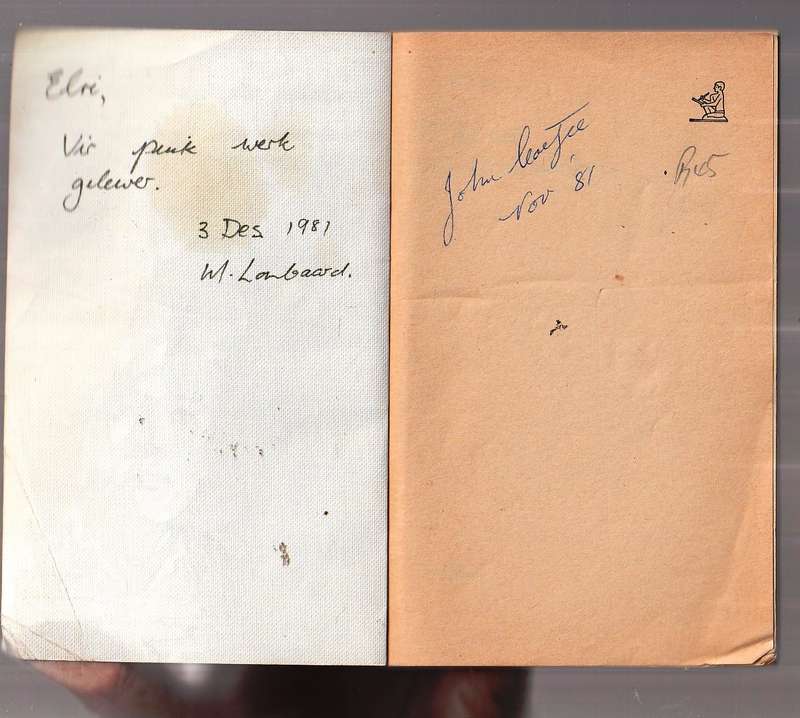 Elri,
Vir puik werk
gelewer.
3 Des 1981
W. Lombaard.
John Coetzee
Nov '81